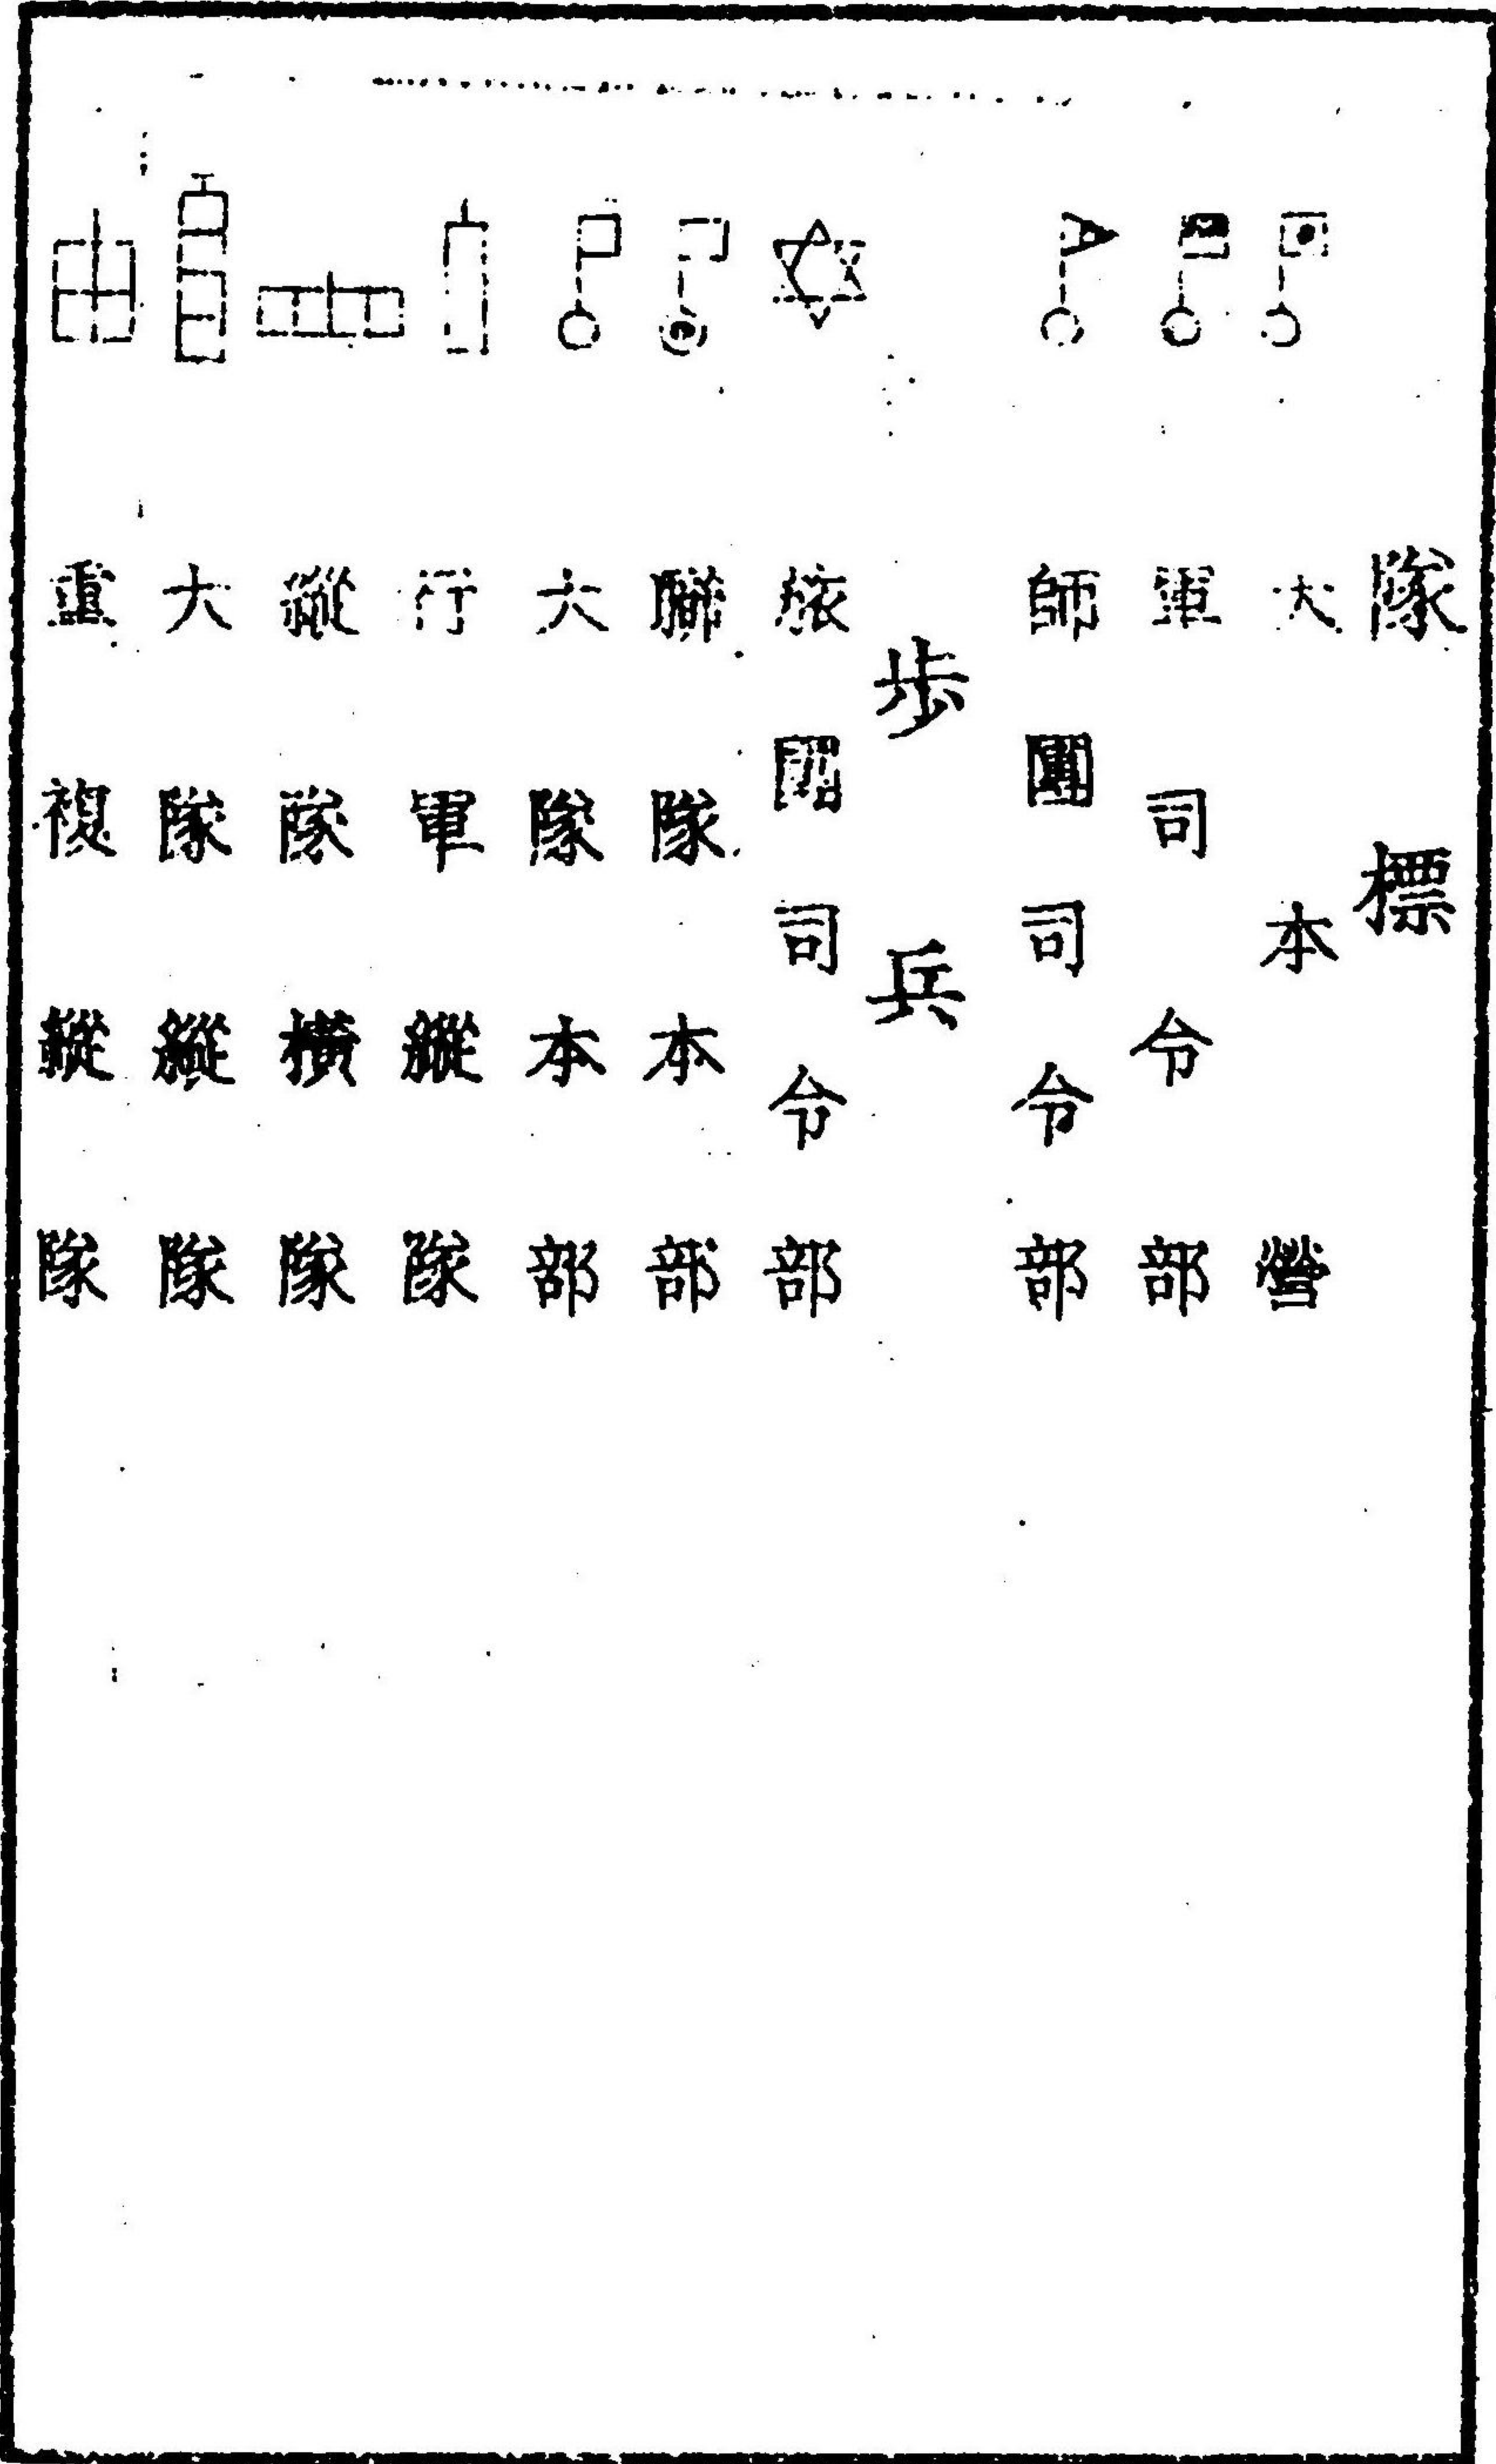 隊標
大本營
軍司令部
師團司令部
歩兵
旅團司令部
聯隊本部
大隊本部
行軍縱隊
縱隊橫隊
大隊縱隊
重複縱隊